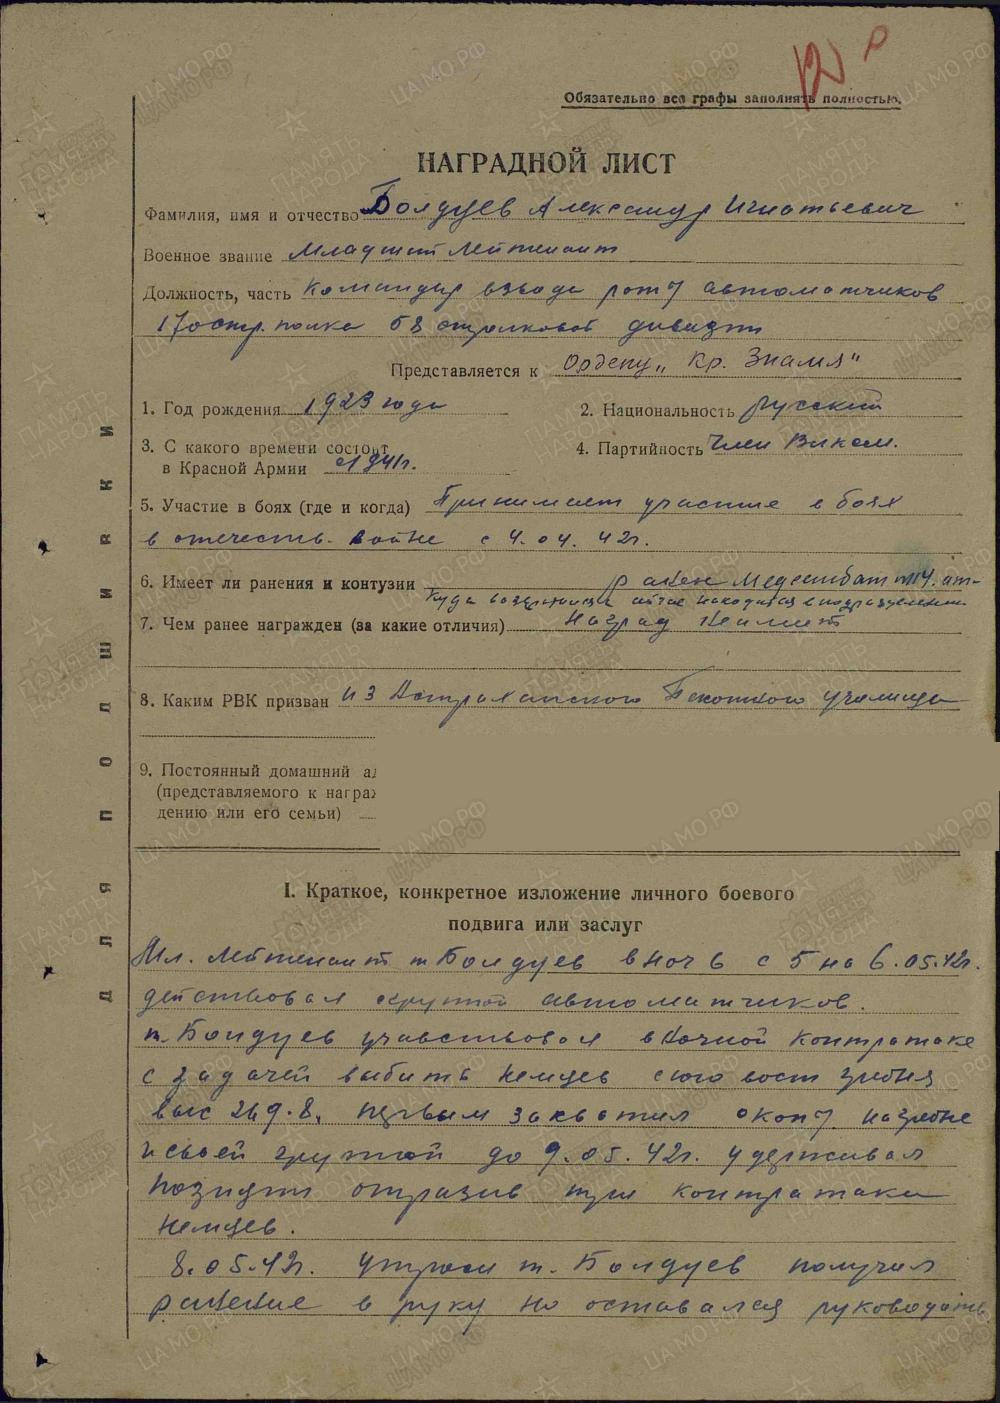 Обязательно все графы заполнять полностью.
НАГРАДНОЙ ЛИСТ
Фамилия, имя и отчество Болдуев Александр Игнатьевич
Военное звание Младший Лейтенант
Должность, часть Командир взвода роты автоматчиков
170 стр. полка 58 стрелковой дивизии
Представляется к Ордену „Кр. Знамя"
1. Год рождения 1923 года
2. Национальность русский
3. С какого времени состоит
в Красной Армии с 1941г.
4. Партийность Член Влксм.
5. Участие в боях (где и когда) Принимает участие в боях
в отечеств. войне с 4.04.42г.
6. Имеет ли ранения и контузии ранен Медсанбат 114. от-
куда возвратился сейчас находится в подразделении
7. Чем ранее награжден (за какие отличия) Наград не имеет
8. Каким РВК призван из Астраханского Пехотного училища
9. Постоянный домашний ад
(представляемого к награж
дению или его семьи)
ДЛЯ ПОДШИВКИ
I. Краткое, конкретное изложение личного боевого
подвига или заслуг
Мл. Лейтенант т Болдуев в ночь с 5 на 6.05.42г.
действовал группой автоматчиков.
т. Болдуев учавствовал в ночной контратаке
с задачей выбить немцев с юго вост гребня
выс 269.8. первым захватил окопы на гребне
и своей группой до 9.05.42г. удерживал
позиции отразив три контратаки
немцев.
8.05.42г. утром т. Болдуев получил
ранение в руку но оставался руководить
ЦА МО РФ
ПАМЯТЬ НАРОДА